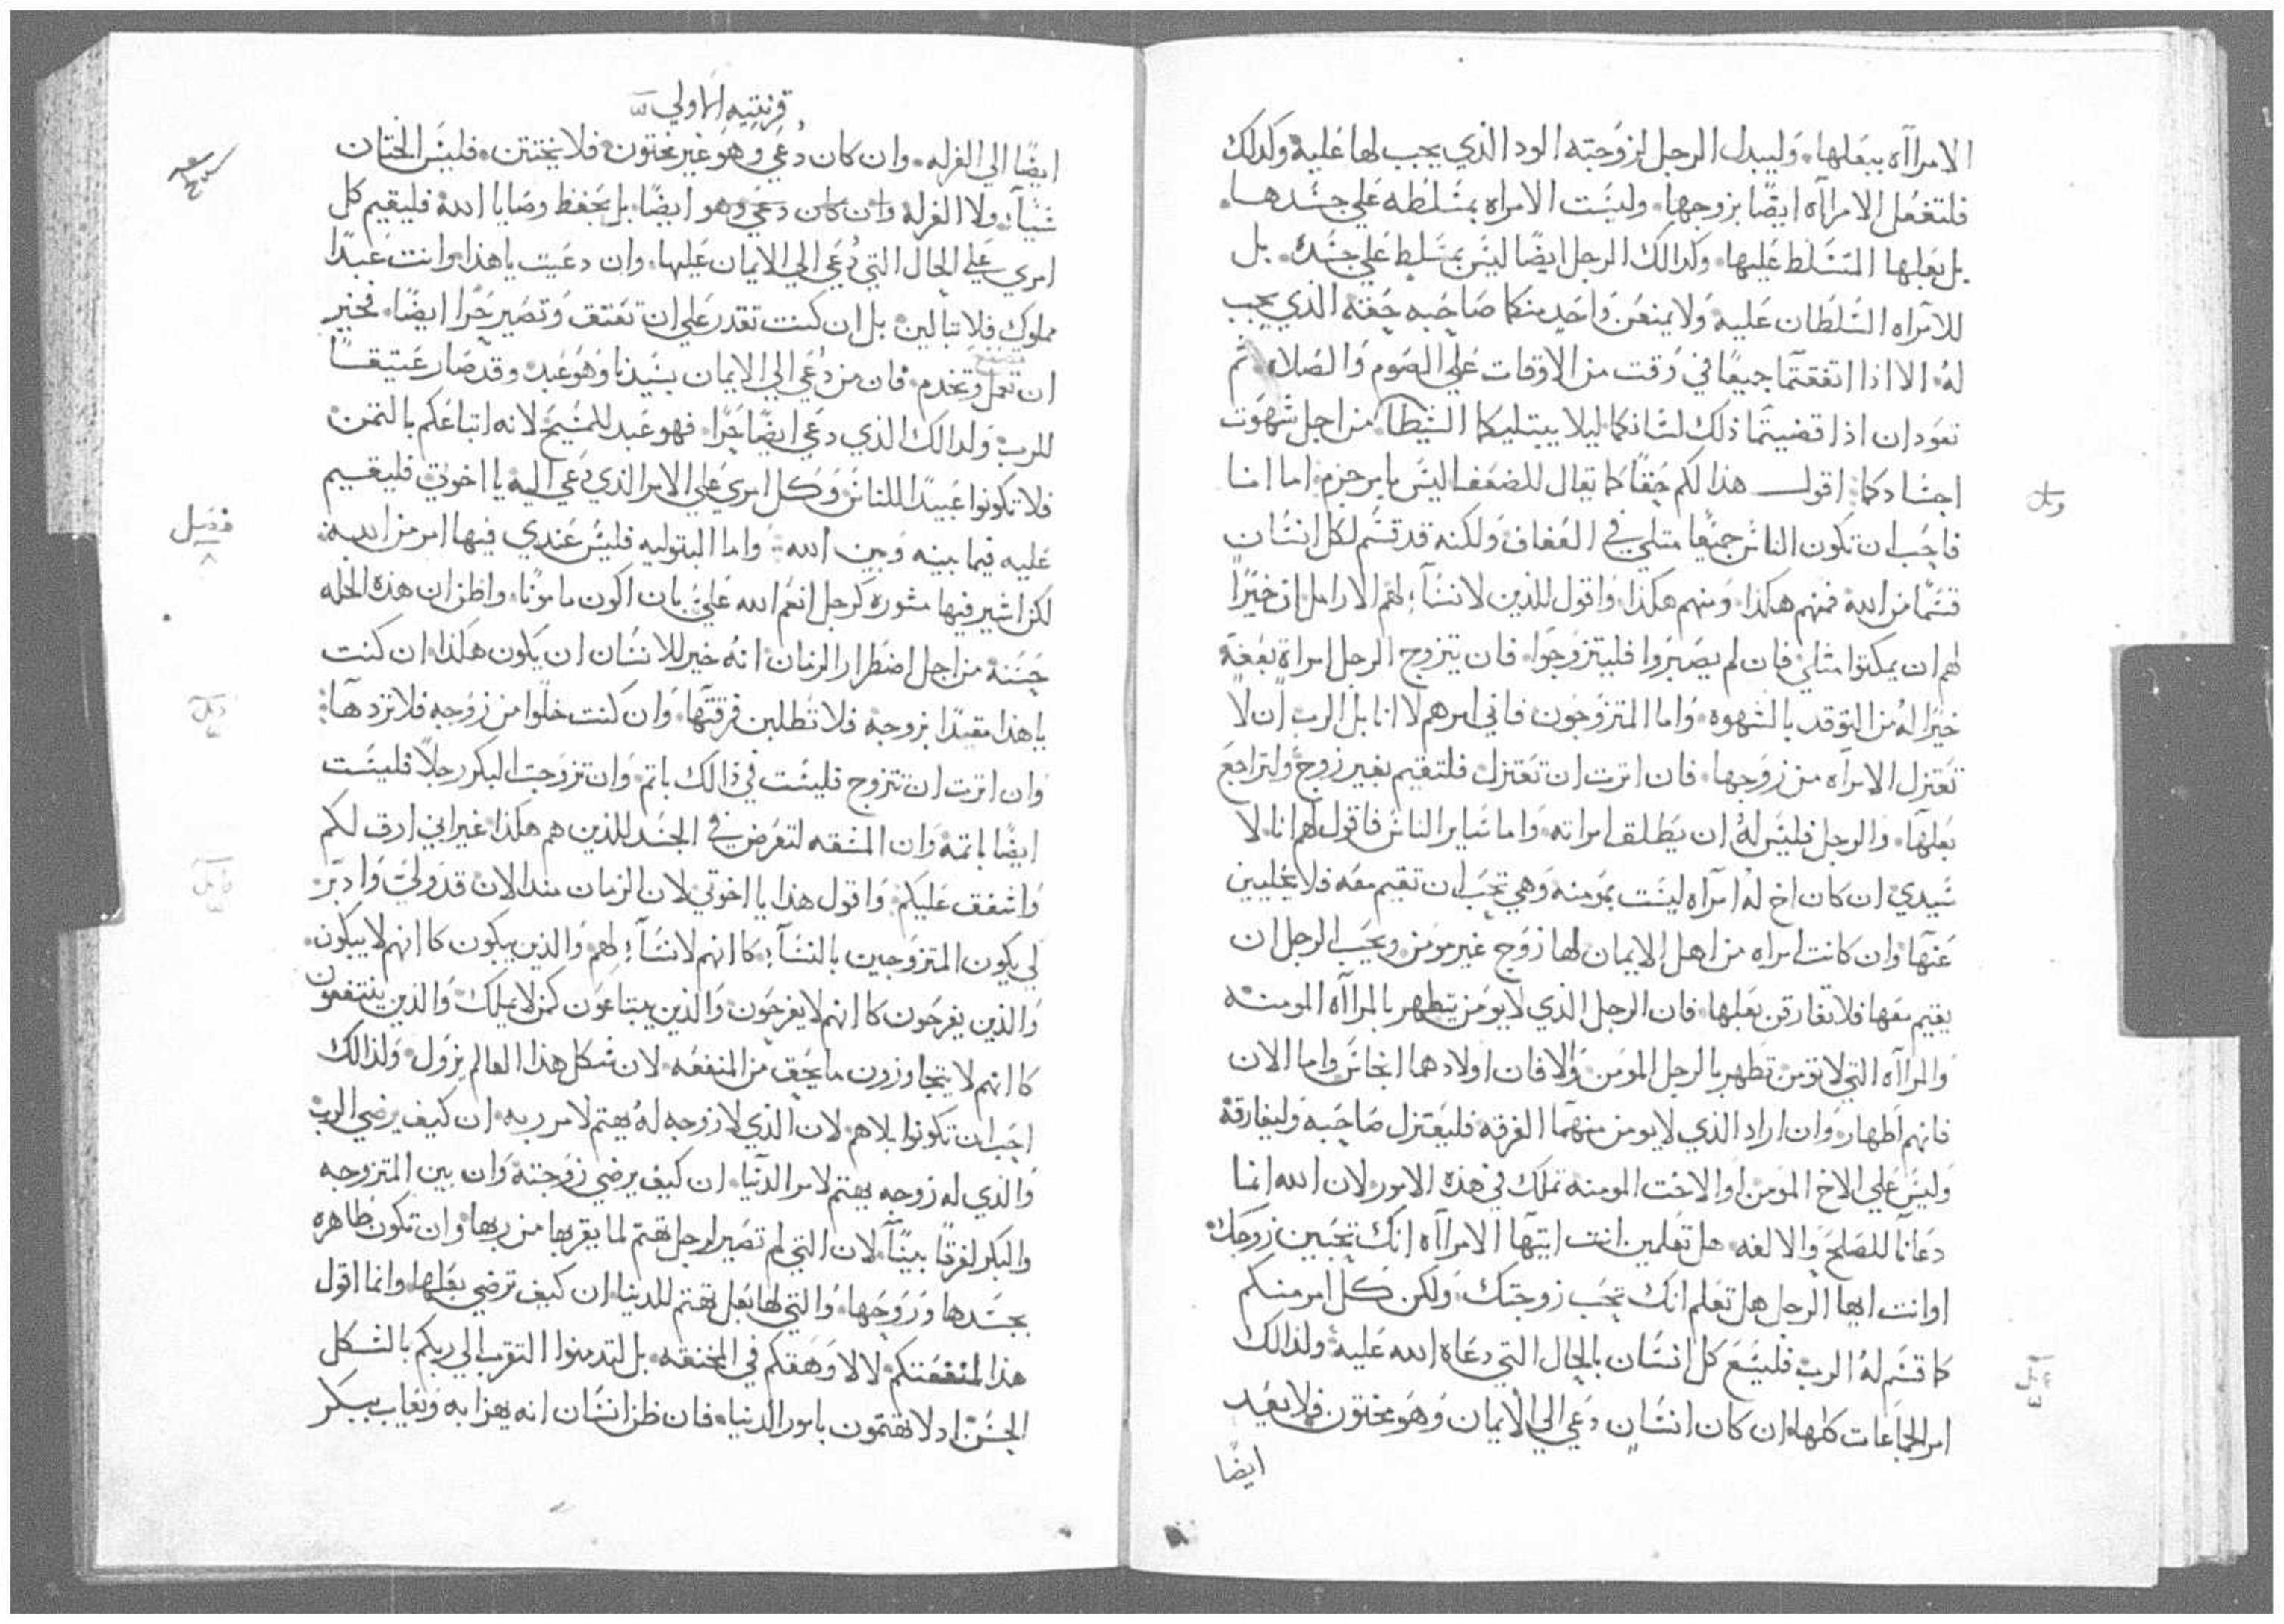 الامرااه ببعلها. وليبدل الرجل لزوجته الود الذي يجب لها عليه وكدلك
فلتفعل الامرااه ايضا بزوجها. وليست الامراه بمسلطه علي جسدها.
بل بعلها المتسلط عليها. وكدالك الرجل ايضا ليس بمسلط علي جسده. بل
للامراه السلطان عليه ولا يمنعن واحد منكما صاحبه حقه الذي يجب
له. الا اذا اتفقتما جميعا في وقت من الاوقات علي الصوم والصلاه. ثم
تعودان اذا قضيتما ذلك لشانكما ليلا يبتليكما الشيطان من اجل شهوت
اجسادكما. اقول هذا لكم حقا كما يقال للضعفا ليس بامر جزم. اما انا
فاحب ان تكون الناس جميعا متلي في العفاف ولكنه قد قسم لكل انسان
قسما من الله فمنهم هكذا. ومنهم هكذا. واقول للدين لا نساء لهم الارامل ان خيرا
لهم ان يمكتوا مثلي فان لم يصبروا فليتزوجوا. فان يتزوج الرجل امراة بعفة
خيرا له من التوقد بالشهوه. واما المتزوجون فاني امرهم لا انا بل الرب ان لا
تعتزل الامراه من زوجها. فان اترت ان تعتزل فلتقيم بغير زوج ولتراجع
بعلها. والرجل فليس له ان يطلق امراته. واما ساير الناس فاقول لهم انا لا
سيدي ان كان اخ له امراه ليست بمومنه وهي تحب ان تقيم معه فلا يخليين
عنها وان كانت امراه من اهل الايمان لها زوج غير مومن ويحب الرجل ان
يقيم معها فلا تفارقن بعلها. فان الرجل الذي لا يومن يتطهر بالمرااه المومنه
والمرااه التي لا تومن تطهر بالرجل المومن والا فان اولادهما انجاس واما الان
فانهم اطهار. وان اراد الذي لا يومن منهما الفرقه فليعتزل صاحبه وليفارقه
وليس علي الاخ المومن او الاخت المومنه تملك في هذه الامور لان الله انما
دعانا للصلح والالفه. هل تعلمين انت ايتها الامرااه انك تحبين زوجك
اوانت ايها الرجل هل تعلم انك تحب زوجتك. ولكن كل امر منكم
كما قسم له الرب فليسع كل انسان بالحال التي دعاه الله عليه ولذالك
امر الجماعات كلها. ان كان انسان دعي الي الايمان وهو مختون فلا يعيد
ايضا
قرنتيه الاولي
ايضا الي الغرله. وان كان دعي وهو غير مختون فلا يختتن. فليس الختان
شيا. ولا الغرلة وان كان دعي وهو ايضا. بل يحفظ وصايا الله فليقيم كل
امري علي الحال التي دعي الي الايمان عليها. وان دعيت ياهذا وانت عبدا
مملوك فلا تبالين بل ان كنت تقدر علي ان تعتق وتصير حرا ايضا. فخير
ان تعمل وتخدم. فان من دعي الي الايمان بسيدنا وهو عبد وقد صار عتيقا
للرب ولدالك الذي دعي ايضا حرا. فهو عبد للمسيح لانه ابتاعكم بالتمن
فلا تكونوا عبيدا للناس. وكل امري علي الامر الذي دعي اليه يا اخوتي فليقيم
عليه فيما بينه وبين الله. واما البتوليه فليس عندي فيها امر من الله.
فصل
لكن اشير فيها مشوره كرجل انعم الله علي بان اكون مامونا. واظن ان هذه الخله
حسنه من اجل اضطرار الزمان انه خير للانسان ان يكون هكذا. ان كنت
ياهذا مقيدا بزوجه فلا تطلبن فرقتها. وان كنت خلوا من زوجه فلا تردها.
وان اترت ان تتزوج فليست في ذالك باتم. وان تزوجت البكر رجلا فليست
ايضا باتمة وان المشقه لتعرض في الجسد للذين هم هكذا غير اني ارق لكم
واشفق عليكم. واقول هدا يا اخوتي لان الزمان مند الان قد ولي وادبر
لي يكون المتزوجين بالنساء كاانهم لا نساء لهم والذين يبكون كاانهم لا يبكون.
والذين يفرحون كاانهم لا يفرحون والذين يبتاعون كمن لا يملك والذين ينتفعون
كاانهم لا يتجاوزون ما يحق من المنفعه. لان شكل هذا العالم يزول ولذالك
احب ان تكونوا بلا هم. لان الذي لا زوجه له يهتم لامر ربه. ان كيف يرضي الرب
والذي له زوجه يهتم لامر الدنيا. ان كيف يرضي زوجته وان بين المتزوجه
والبكر لفرقا بينا. لان التي لم تصير لرجل تهتم لما يقربها من ربها وان تكون طاهره
بجسدها وروحها. والتي لها بعل تهتم للدنيا ان كيف ترضي بعلها. وانما اقول
هذا لمنفعتكم لا لاوهقكم في المخنقه. بل لتدمنوا التقرب الي ربكم بالشكل
الحسن اد لا تهتمون بامور الدنيا. فان ظن انسان انه يهزا به ويعاب ببكر